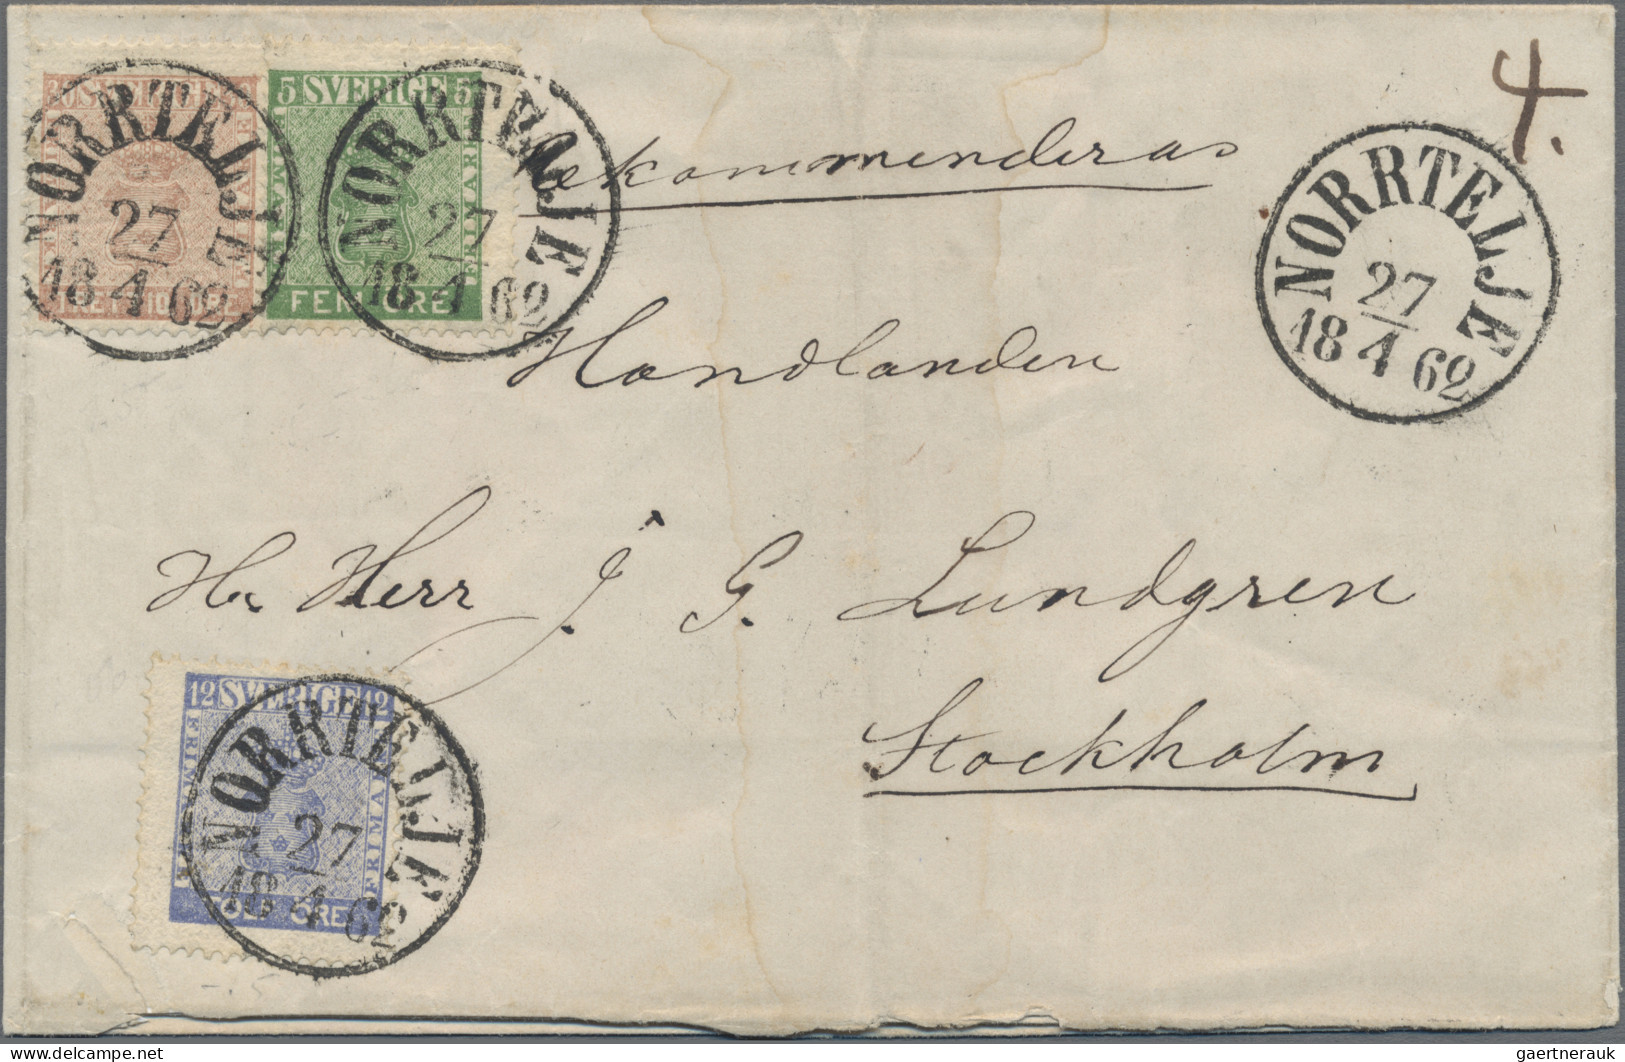 4.
30 SVERIGE 30
FRIMÄRKE
TRETTIO ÖRE
5 SVERIGE 5
FRIMÄRKE
FEM ÖRE
NORRTELJE
27
18 4 62
NORRTELJE
27
18 4 62
Rekommenderas
NORRTELJE
27
18 4 62
Handlanden
H. Herr J. G. Lundgren
Stockholm
12 SVERIGE 12
FRIMÄRKE
TOLF ÖRE
NORRTELJE
27
18 4 62
gaertnerauk